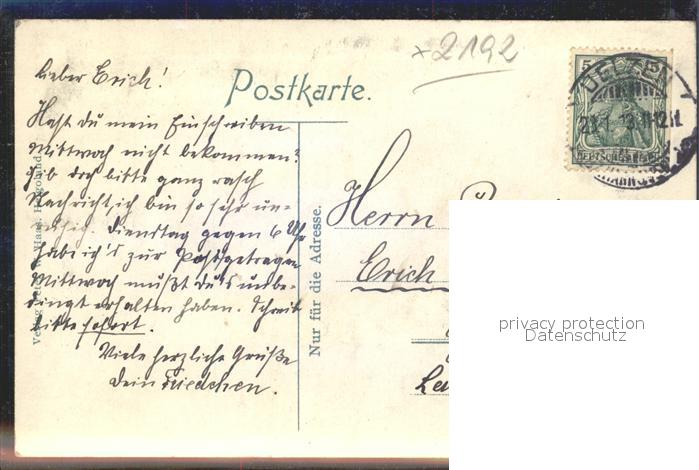 *2192
Postkarte.
lieber Erich!
Hast du mein Einschreiben
Mittwoch nicht bekommen?
Gib doch bitte ganz rasch
Nachricht, ich bin so sehr un-
ruhig. Dienstag gegen 6 Uhr
hab ich's zur Post getragen
Mittwoch mußt du's unbe-
dingt erhalten haben. Schreib
bitte sofort.
Viele herzliche Grüße
dein Friedchen.
Nur für die Adresse.
Herrn
Erich
5
UELZEN
privacy protection
Datenschutz